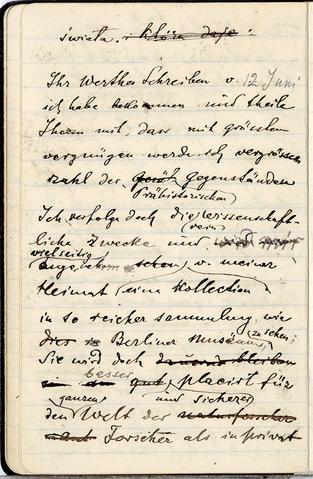 świata. i która daje.
Ihr Werthes Schreiben v. 12 Juni
ich habe bekommen und theile
Ihnen mit, dass mit grösstem
vergnügen werde ich vergrössen
zahl der gegenständen
Prähistorischen
Ich verfolge doch die wissenschaft-
liche Zwecke und
vielseitig
v. meiner
Heimat (eine Kollection)
in so reicher sammlung wie
Berliner Museums, zu sehen;
Sie wird doch dauernd bleiben
besser
gut, placirt für
ganzen und sicherer
den Welt der naturforscher
Forscher als in privat